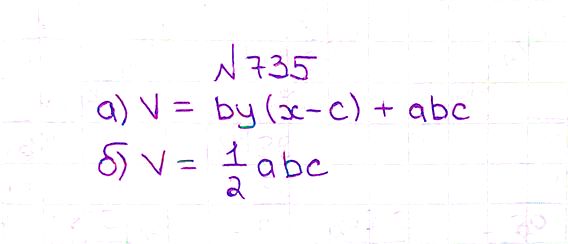 №735
а) V = by(x-c) + abc
б) V = 1/2 abc